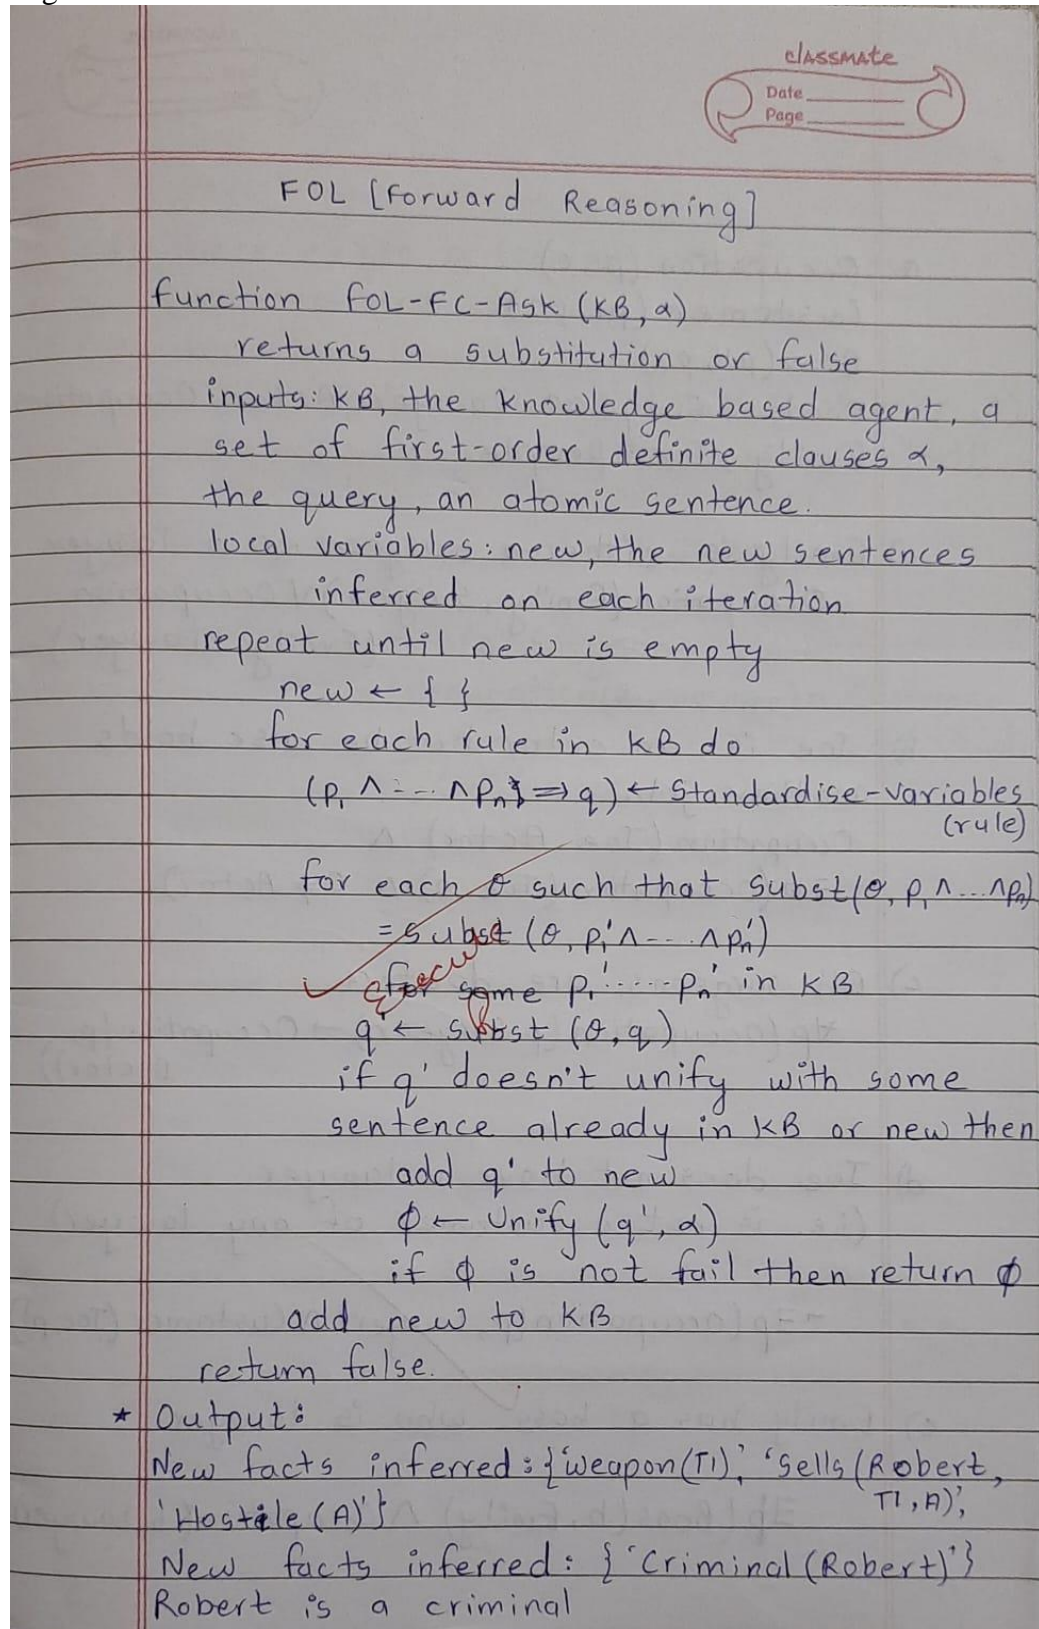 classmate
Date
Page
FOL [Forward Reasoning]
function FOL-FC-Ask (KB, α)
returns a substitution or false
inputs: KB, the knowledge based agent, a
set of first-order definite clauses α,
the query, an atomic sentence.
local variables: new, the new sentences
inferred on each iteration
repeat until new is empty
new ← { }
for each rule in KB do
(p₁ ∧ ... ∧ pₙ ⇒ q) ← Standardise-variables
(rule)
for each θ such that subst(θ, p₁ ∧ ... ∧ pₙ)
= subst (θ, p₁' ∧ ... ∧ pₙ')
for some p₁' ..... pₙ' in KB
q' ← subst (θ, q)
if q' doesn't unify with some
sentence already in KB or new then
add q' to new
φ ← Unify (q', α)
if φ is not fail then return φ
add new to KB
return false.
* Output:
New facts inferred: {'Weapon(T1)', 'Sells(Robert,
T1, A)',
'Hostile(A)'}
New facts inferred: {'Criminal(Robert)'}
Robert is a criminal